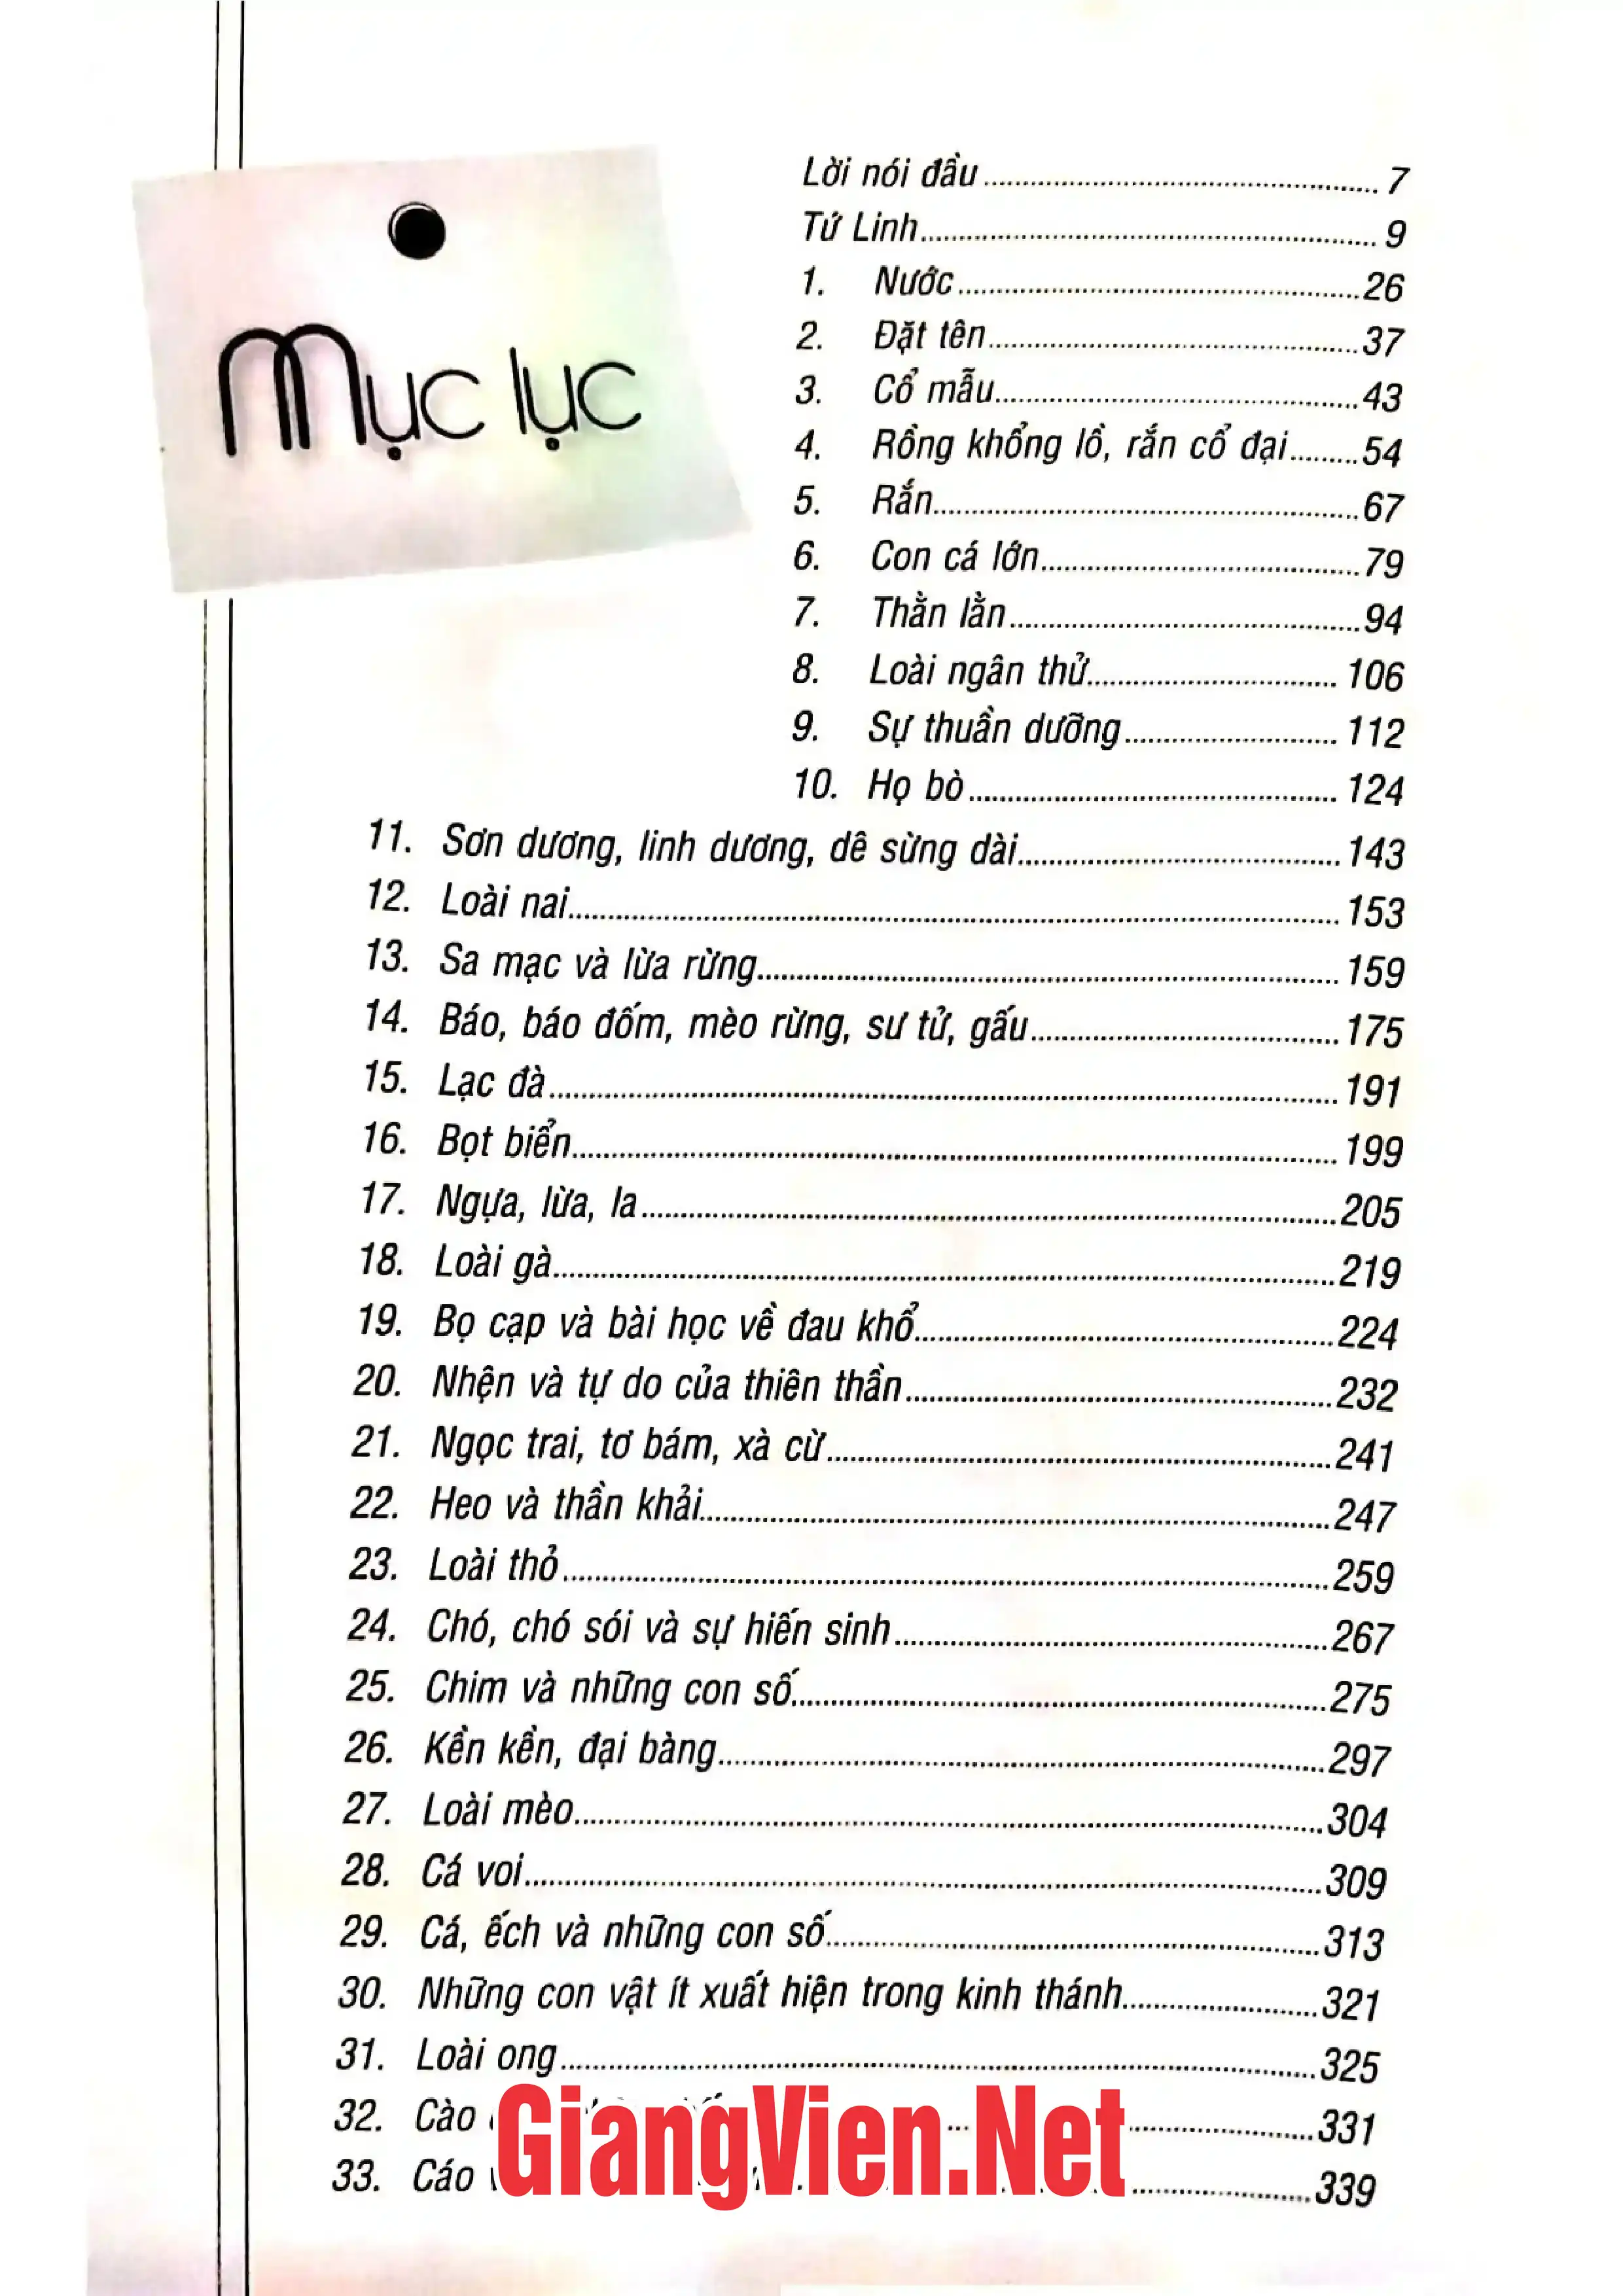 Mục lục
Lời nói đầu 7
Tứ Linh 9
1. Nước 26
2. Đặt tên 37
3. Cổ mẫu 43
4. Rồng khổng lồ, rắn cổ đại 54
5. Rắn 67
6. Con cá lớn 79
7. Thằn lằn 94
8. Loài ngân thử 106
9. Sự thuần dưỡng 112
10. Họ bò 124
11. Sơn dương, linh dương, dê sừng dài 143
12. Loài nai 153
13. Sa mạc và lừa rừng 159
14. Báo, báo đốm, mèo rừng, sư tử, gấu 175
15. Lạc đà 191
16. Bọt biển 199
17. Ngựa, lừa, la 205
18. Loài gà 219
19. Bọ cạp và bài học về đau khổ 224
20. Nhện và tự do của thiên thần 232
21. Ngọc trai, tơ bám, xà cừ 241
22. Heo và thần khải 247
23. Loài thỏ 259
24. Chó, chó sói và sự hiến sinh 267
25. Chim và những con số 275
26. Kền kền, đại bàng 297
27. Loài mèo 304
28. Cá voi 309
29. Cá, ếch và những con số 313
30. Những con vật ít xuất hiện trong kinh thánh 321
31. Loài ong 325
32. Cào 331
33. Cáo 339
GiangVien.Net